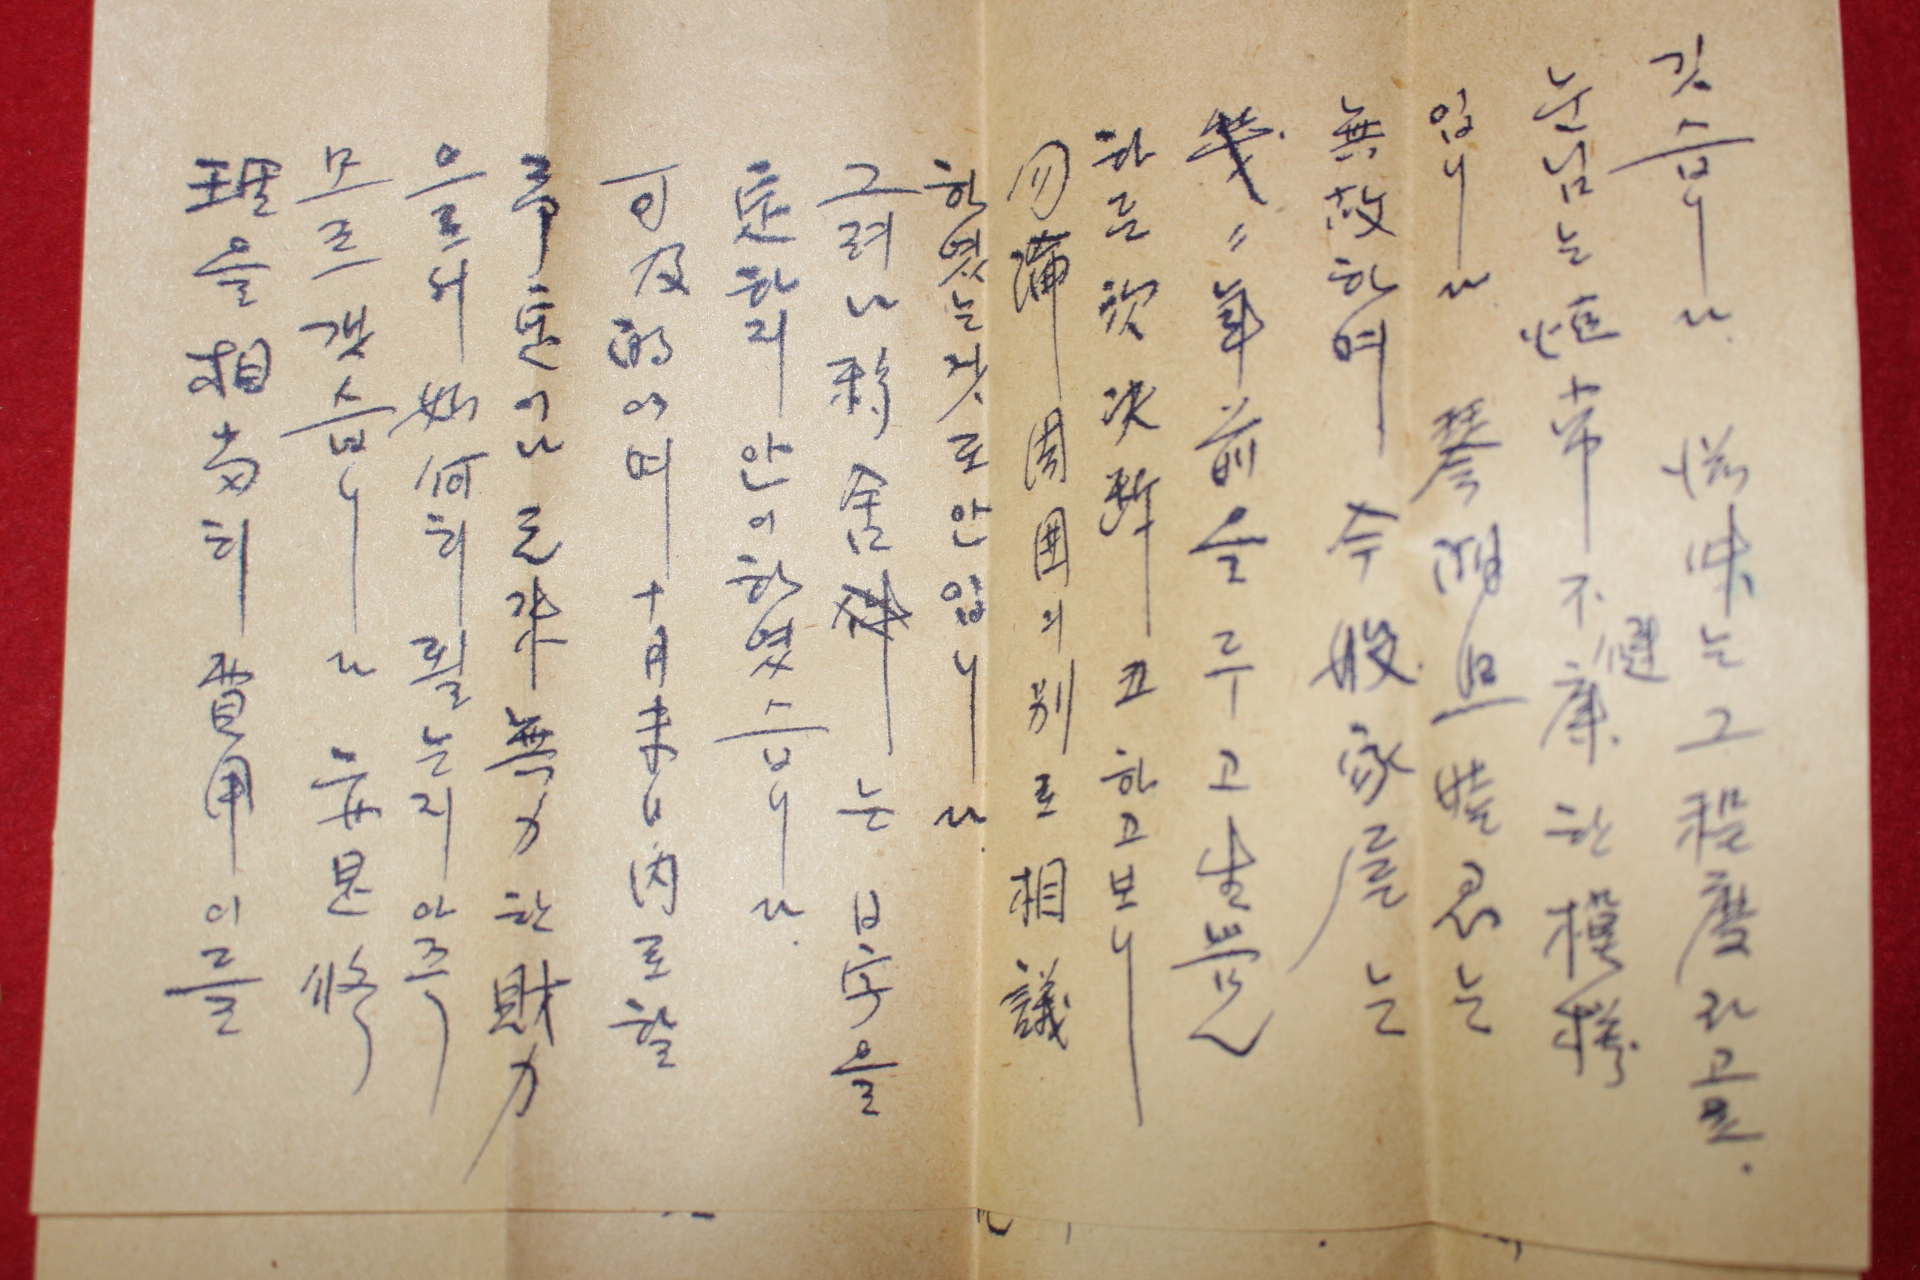 깃슴니다. 滋味는 그 程度라고요.
눈님는 恒常 不健康한 模樣
입니다.
無故하며 今般 家屋는
幾〃年前을 두고 生覺
하든 次 決斷코 하고보니
勿論 周圍의 別로 相議
한였는것로 안입니다.
그러나 移舍 는 日字을
定한지 안이하였슴니다.
可及的이며 十月末日內로 할
豫定이나 元來 無力한 財力
으로서 如何히 될는지 아주
모르갯슴니다. 家屋修
理을 相當히 費用이를